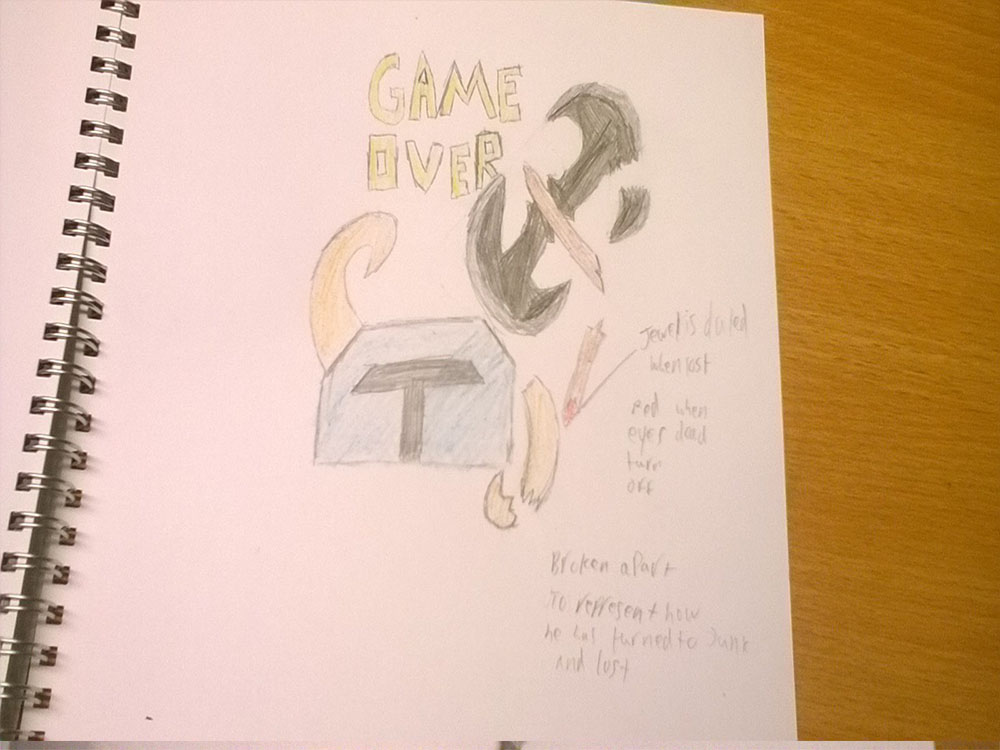 GAME
OVER
Jewel is duled
when lost
red when
eyes dead
turn
off
Broken apart
To represent how
he has turned to Junk
and lost